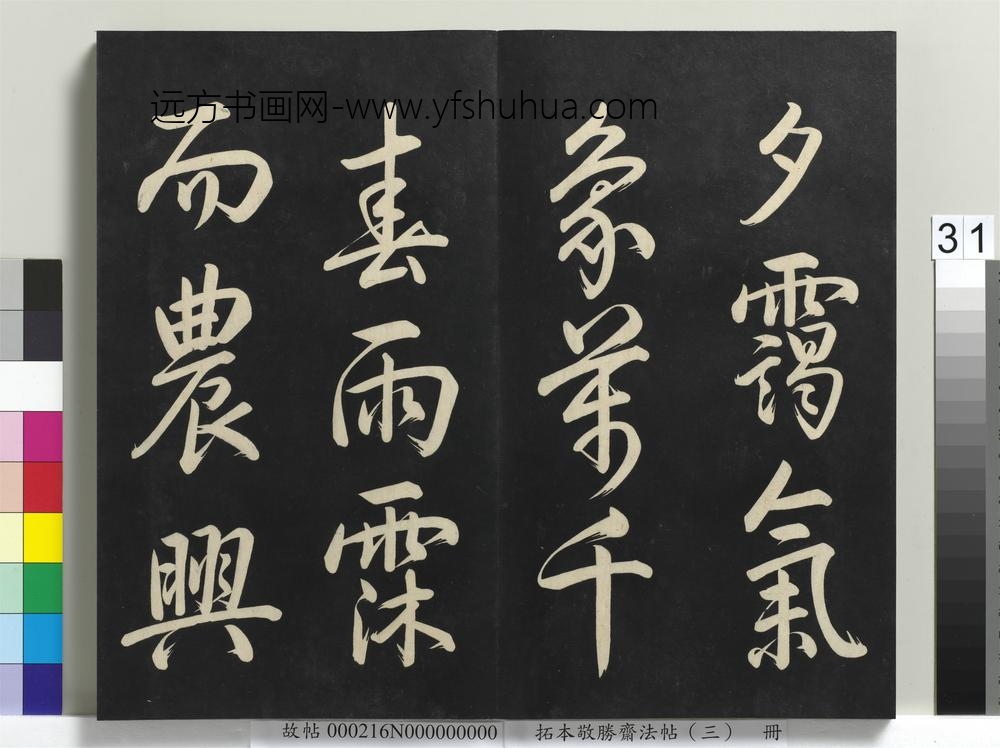 夕靄氣
象萬千
春雨霂
而農興
远方书画网-www.yfshuhua.com
31
故帖 000216N000000000 拓本敬勝齋法帖（三） 冊